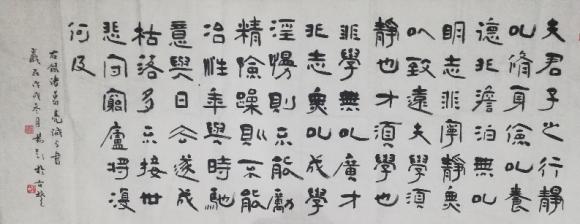 夫君子之行靜
以脩身儉以養
德非澹泊無以
明志非寧靜無
以致遠夫學須
靜也才須學也
非學無以廣才
非志無以成學
淫慢則不能勵
精險躁則不能
冶性年與時馳
意與日去遂成
枯落多不接世
悲守窮廬將復
何及
右錄諸葛亮誡子書
歲在戊戌冬月